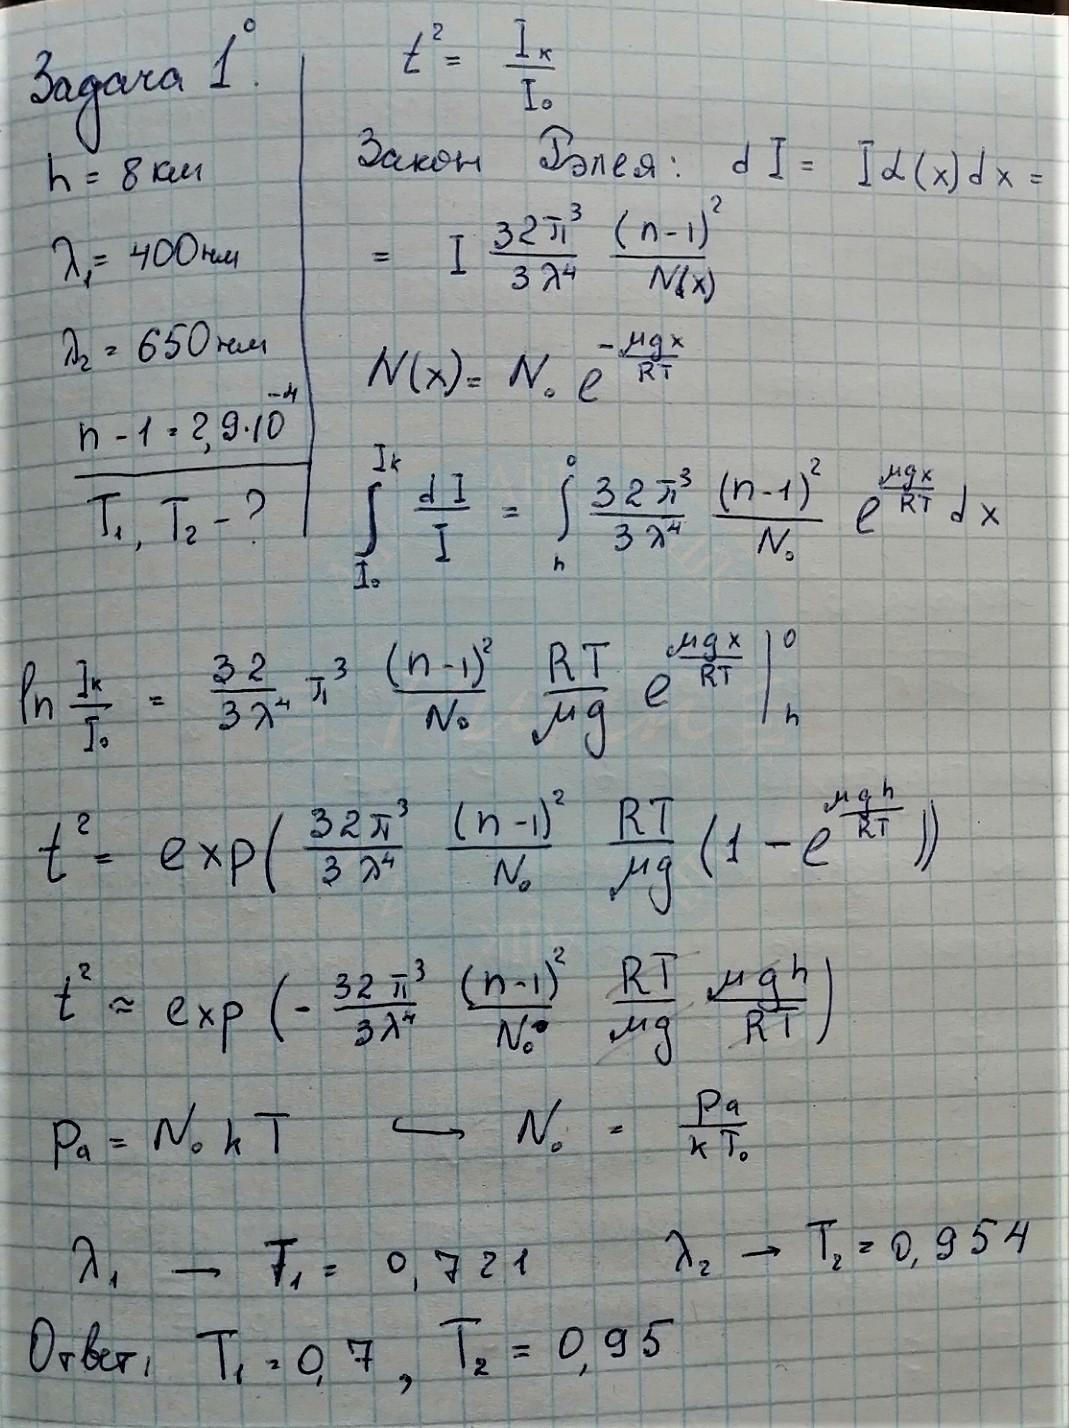 Задача 1°.
h = 8 км
λ₁ = 400 нм
λ₂ = 650 нм
n - 1 = 2,9·10⁻⁴
T₁, T₂ - ?
t² = Iₖ/I₀
Закон Рэлея: dI = Iα(x)dx =
= I 32π³/3λ⁴ (n-1)²/N(x)
N(x) = N₀ e^(-μgx/RT)
∫_{I₀}^{Iₖ} dI/I = ∫_h^0 32π³/3λ⁴ (n-1)²/N₀ e^(μgx/RT) dx
ln Iₖ/I₀ = 32/3λ⁴ π³ (n-1)²/N₀ RT/μg e^(μgx/RT) |_h^0
t² = exp(32π³/3λ⁴ (n-1)²/N₀ RT/μg (1 - e^(μgh/RT)))
t² ≈ exp(-32π³/3λ⁴ (n-1)²/N₀ RT/μg μgh/RT)
Pa = N₀kT ↪ N₀ = Pa/kT₀
λ₁ → T₁ = 0,721 λ₂ → T₂ = 0,954
Ответ: T₁ = 0,7, T₂ = 0,95